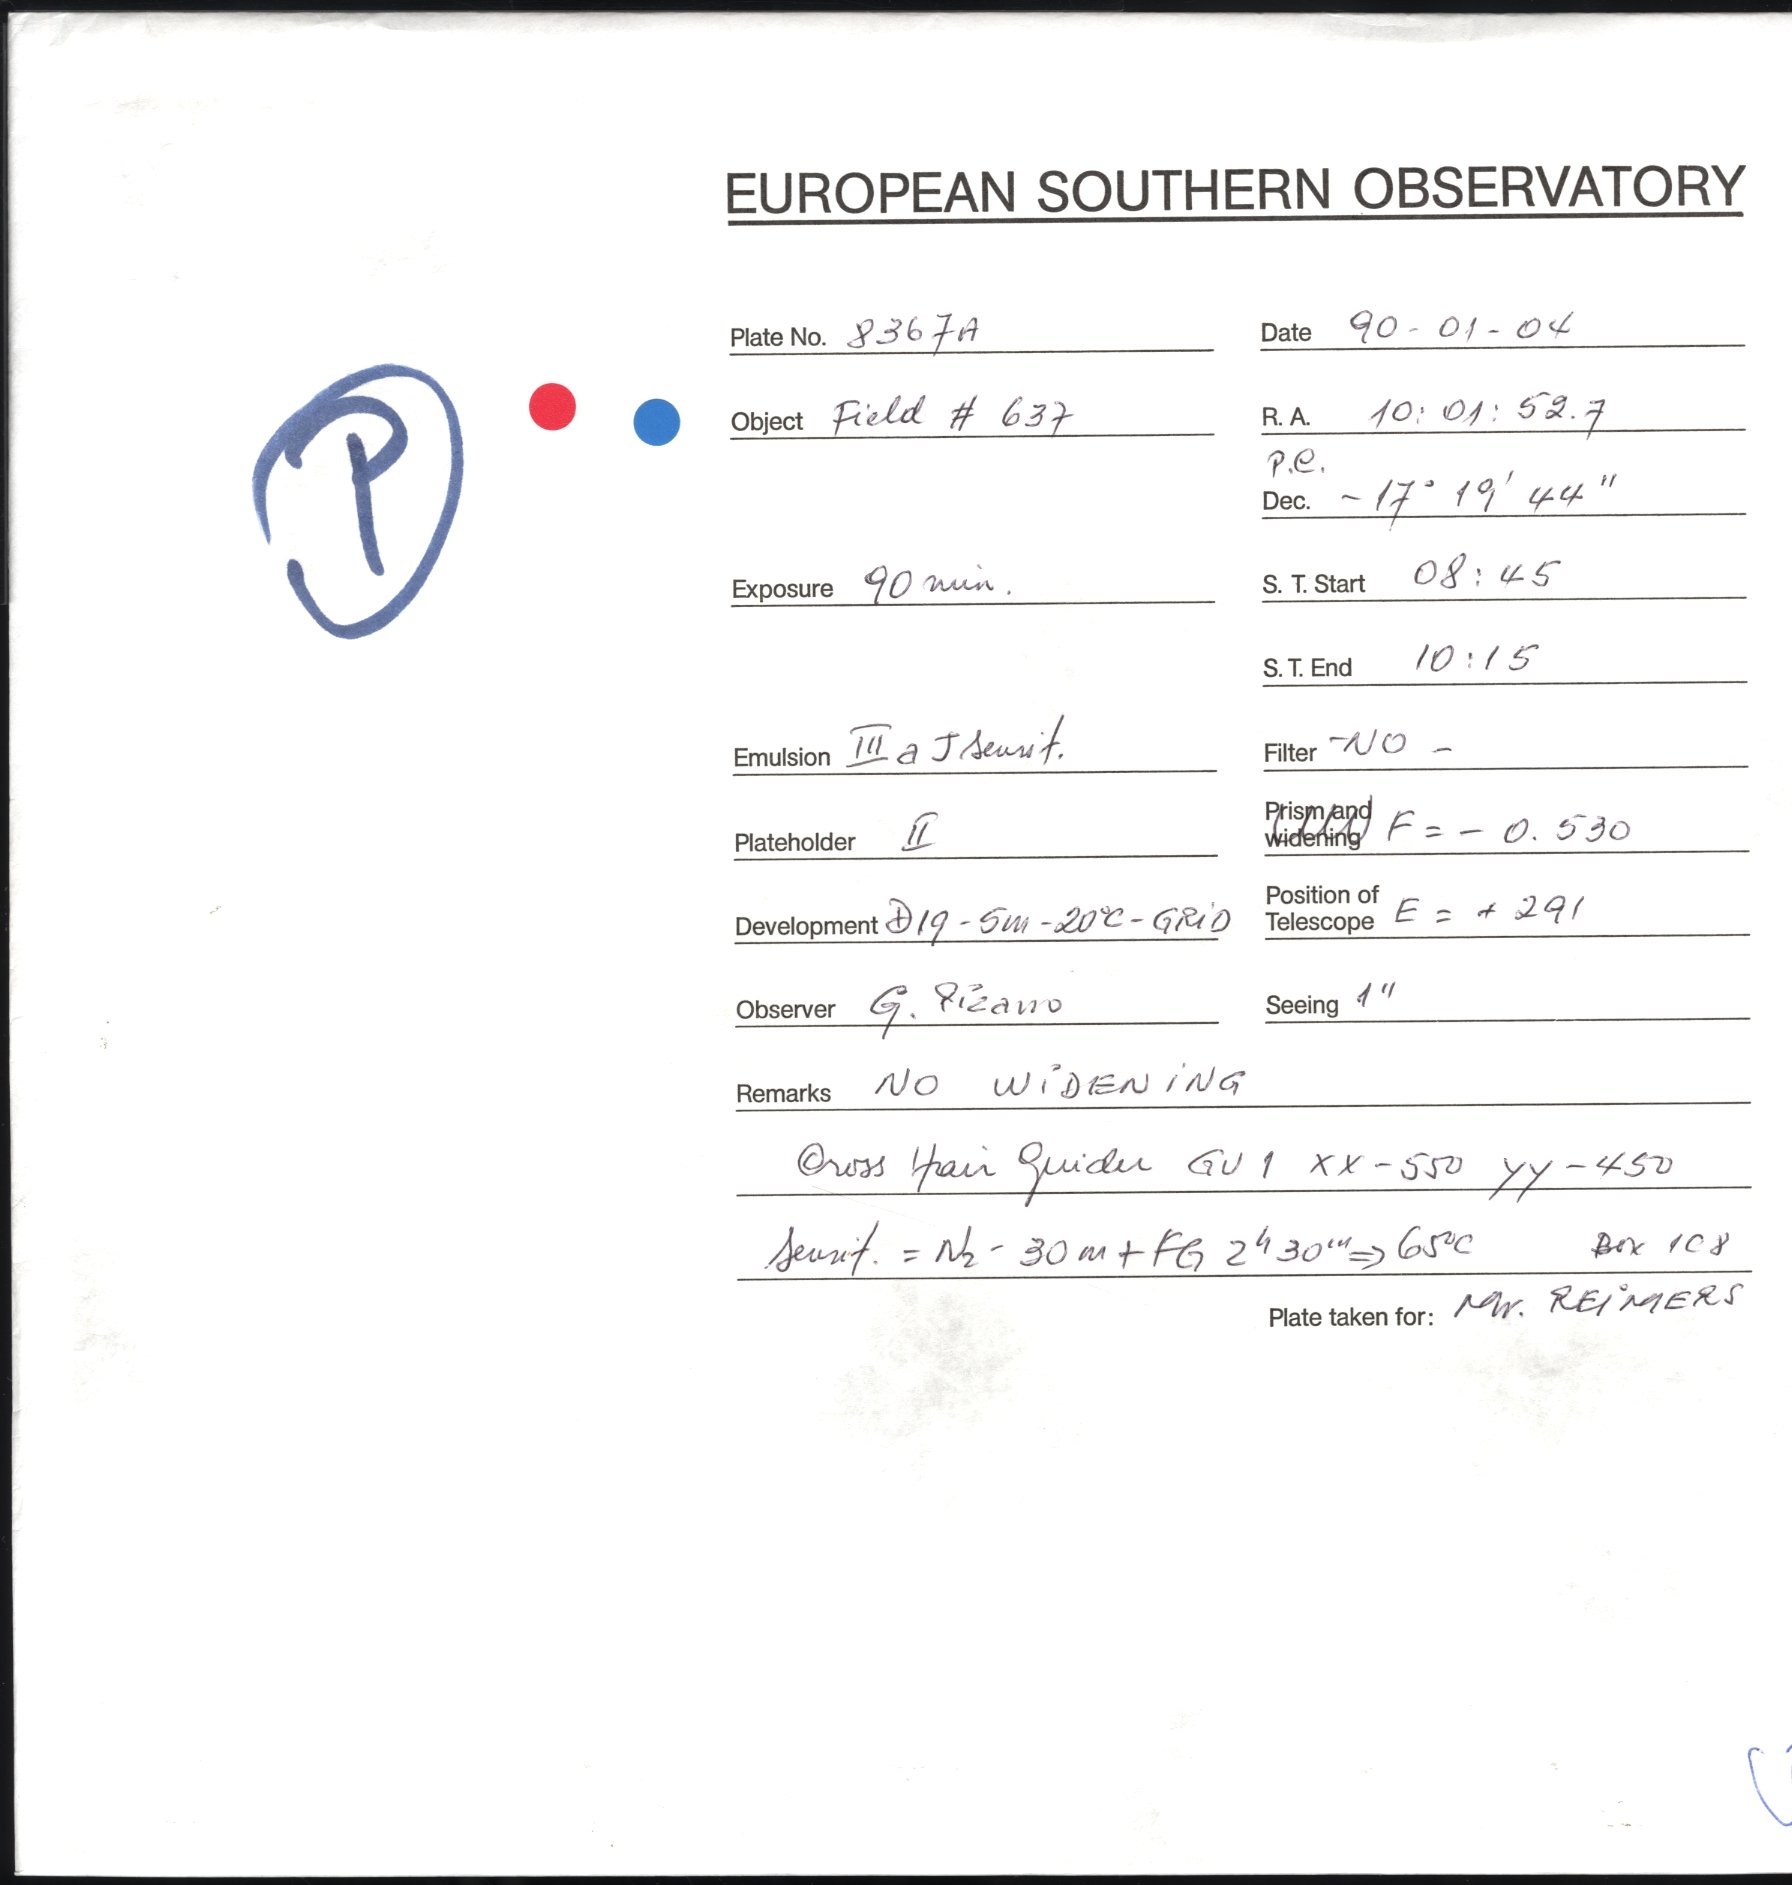 EUROPEAN SOUTHERN OBSERVATORY
Plate No. 8367A Date 90-01-04
P
Object Field # 637 R. A. 10:01:52.7
P.C.
Dec. -17° 19' 44"
Exposure 90 min. S. T. Start 08:45
S. T. End 10:15
Emulsion III a J Sensit. Filter -NO-
Plateholder II Prism and widening F = - 0.530
Development D19-5m-20°C-GRID Position of Telescope E = + 291
Observer G. Pizarro Seeing 1"
Remarks NO WIDENING
Cross Hair Guider GU 1 XX-550 YY-450
Sensit. = N2 - 30m + FG 2h 30m => 65°C Box 1C8
Plate taken for: Mr. REIMERS